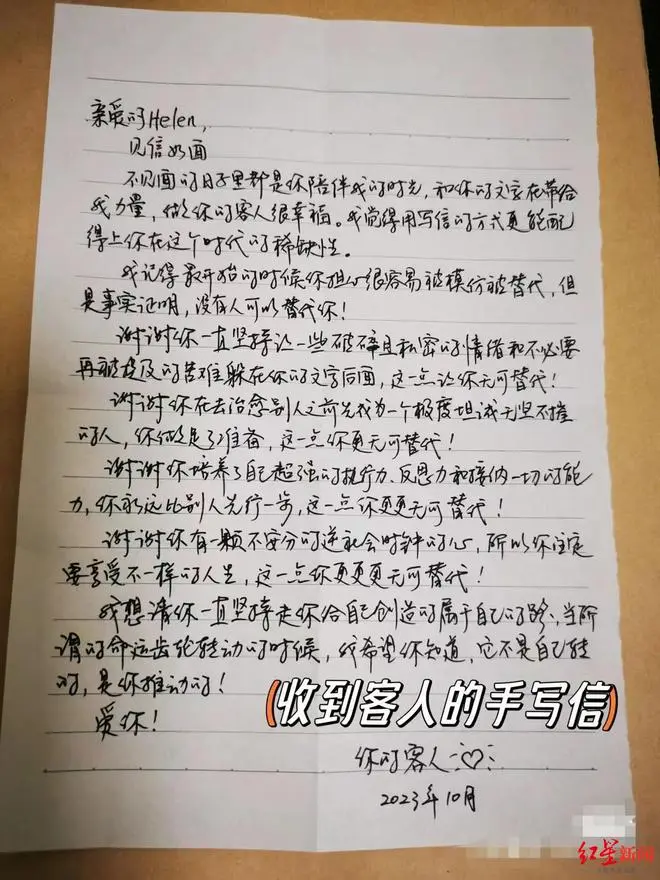 亲爱的Helen，
见信如面
不见面的日子里都是你陪伴我的时光，和你的文字在带给
我力量，做你的客人很幸福。我觉得用写信的方式更能配
得上你在这个时代的稀缺性。
我记得最开始的时候你担心很容易被模仿被替代，但
是事实证明，没有人可以替代你！
谢谢你一直坚持让一些破碎且私密的情绪和不必要
再被提及的苦难躲在你的文字后面，这一点让你无可替代！
谢谢你在去治愈别人之前先成为一个极度坦诚无坚不摧
的人，你做足了准备，这一点你更无可替代！
谢谢你培养了自己超强的执行力、反思力和接纳一切的能
力，你永远比别人先行一步，这一点你更更无可替代！
谢谢你有一颗不安分的逆社会时钟的心，所以你注定
要享受不一样的人生，这一点你更更更无可替代！
我想请你一直坚持走你给自己创造的属于自己的路，当所
谓的命运齿轮转动的时候，我希望你知道，它不是自己转
的，是你推动的！
(收到客人的手写信)
爱你！
你的客人
2023年10月
红星新闻